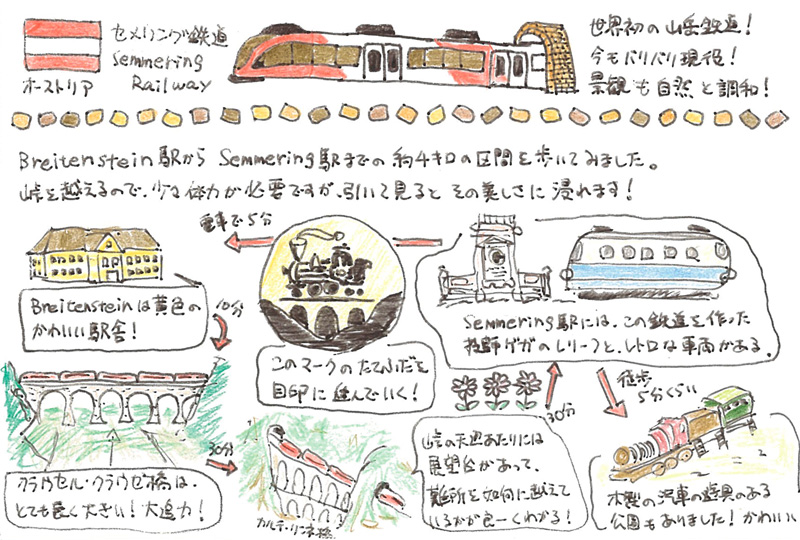 セメリング鉄道
Semmering
Railway
オーストリア
世界初の山岳鉄道！
今もバリバリ現役！
景観も自然と調和！
Breitenstein駅から Semmering駅までの約4キロの区間を歩いてみました。
峠を越えるので、少々体力が必要ですが、引いて見るとその美しさに浸れます！
電車で5分
Breitensteinは黄色の
かわいい駅舎！
10分
このマークのたてふだを
目印に進んでいく！
Semmering駅には、この鉄道を作った
ゲガのレリーフと、レトロな車両がある。
クラウセル・クラウゼ橋は、
とても長く大きい！大迫力！
30分
カルテ・リンネ橋
峠の天辺あたりには
展望台があって、
難所を如何に越えて
いるかが良ーくわかる！
30分
徒歩
5分くらい
木製の汽車の遊具のある
公園もありました！かわいい